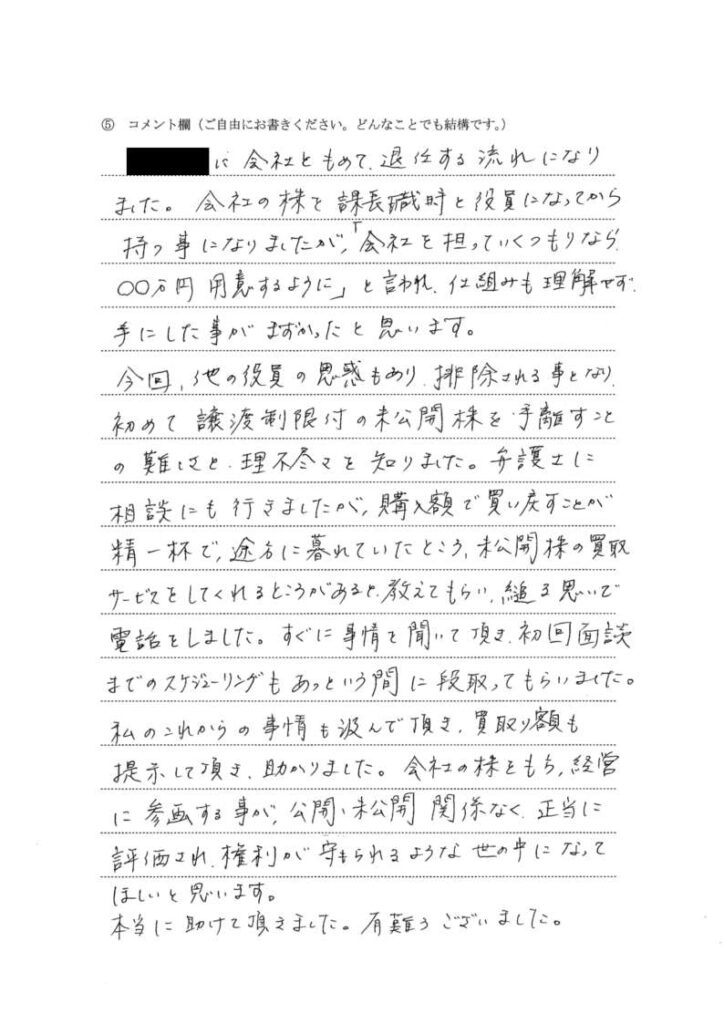 ⑤ コメント欄（ご自由にお書きください。どんなことでも結構です。）
に会社ともめて、退任する流れになり
ました。会社の株を課長職時と役員になってから
持つ事になりましたが、「会社を担っていくつもりなら、
〇〇万円用意するように」と言われ、仕組みも理解せず、
手にした事がまずかったと思います。
今回、他の役員の思惑もあり、排除される事となり、
初めて譲渡制限付の未公開株を手離すこと
の難しさと、理不尽さを知りました。弁護士に
相談にも行きましたが、購入額で買い戻すことが
精一杯で、途方に暮れていたところ、未公開株の買取
サービスをしてくれるところがあると、教えてもらい、縋る思いで
電話をしました。すぐに事情を聞いて頂き、初回面談
までのスケジューリングもあっという間に段取ってもらいました。
私のこれからの事情も汲んで頂き、買取り額も
提示して頂き、助かりました。会社の株をもち、経営
に参画する事が、公開、未公開関係なく、正当に
評価され、権利が守もられるような世の中になって
ほしいと思います。
本当に助けて頂きました。有難うございました。